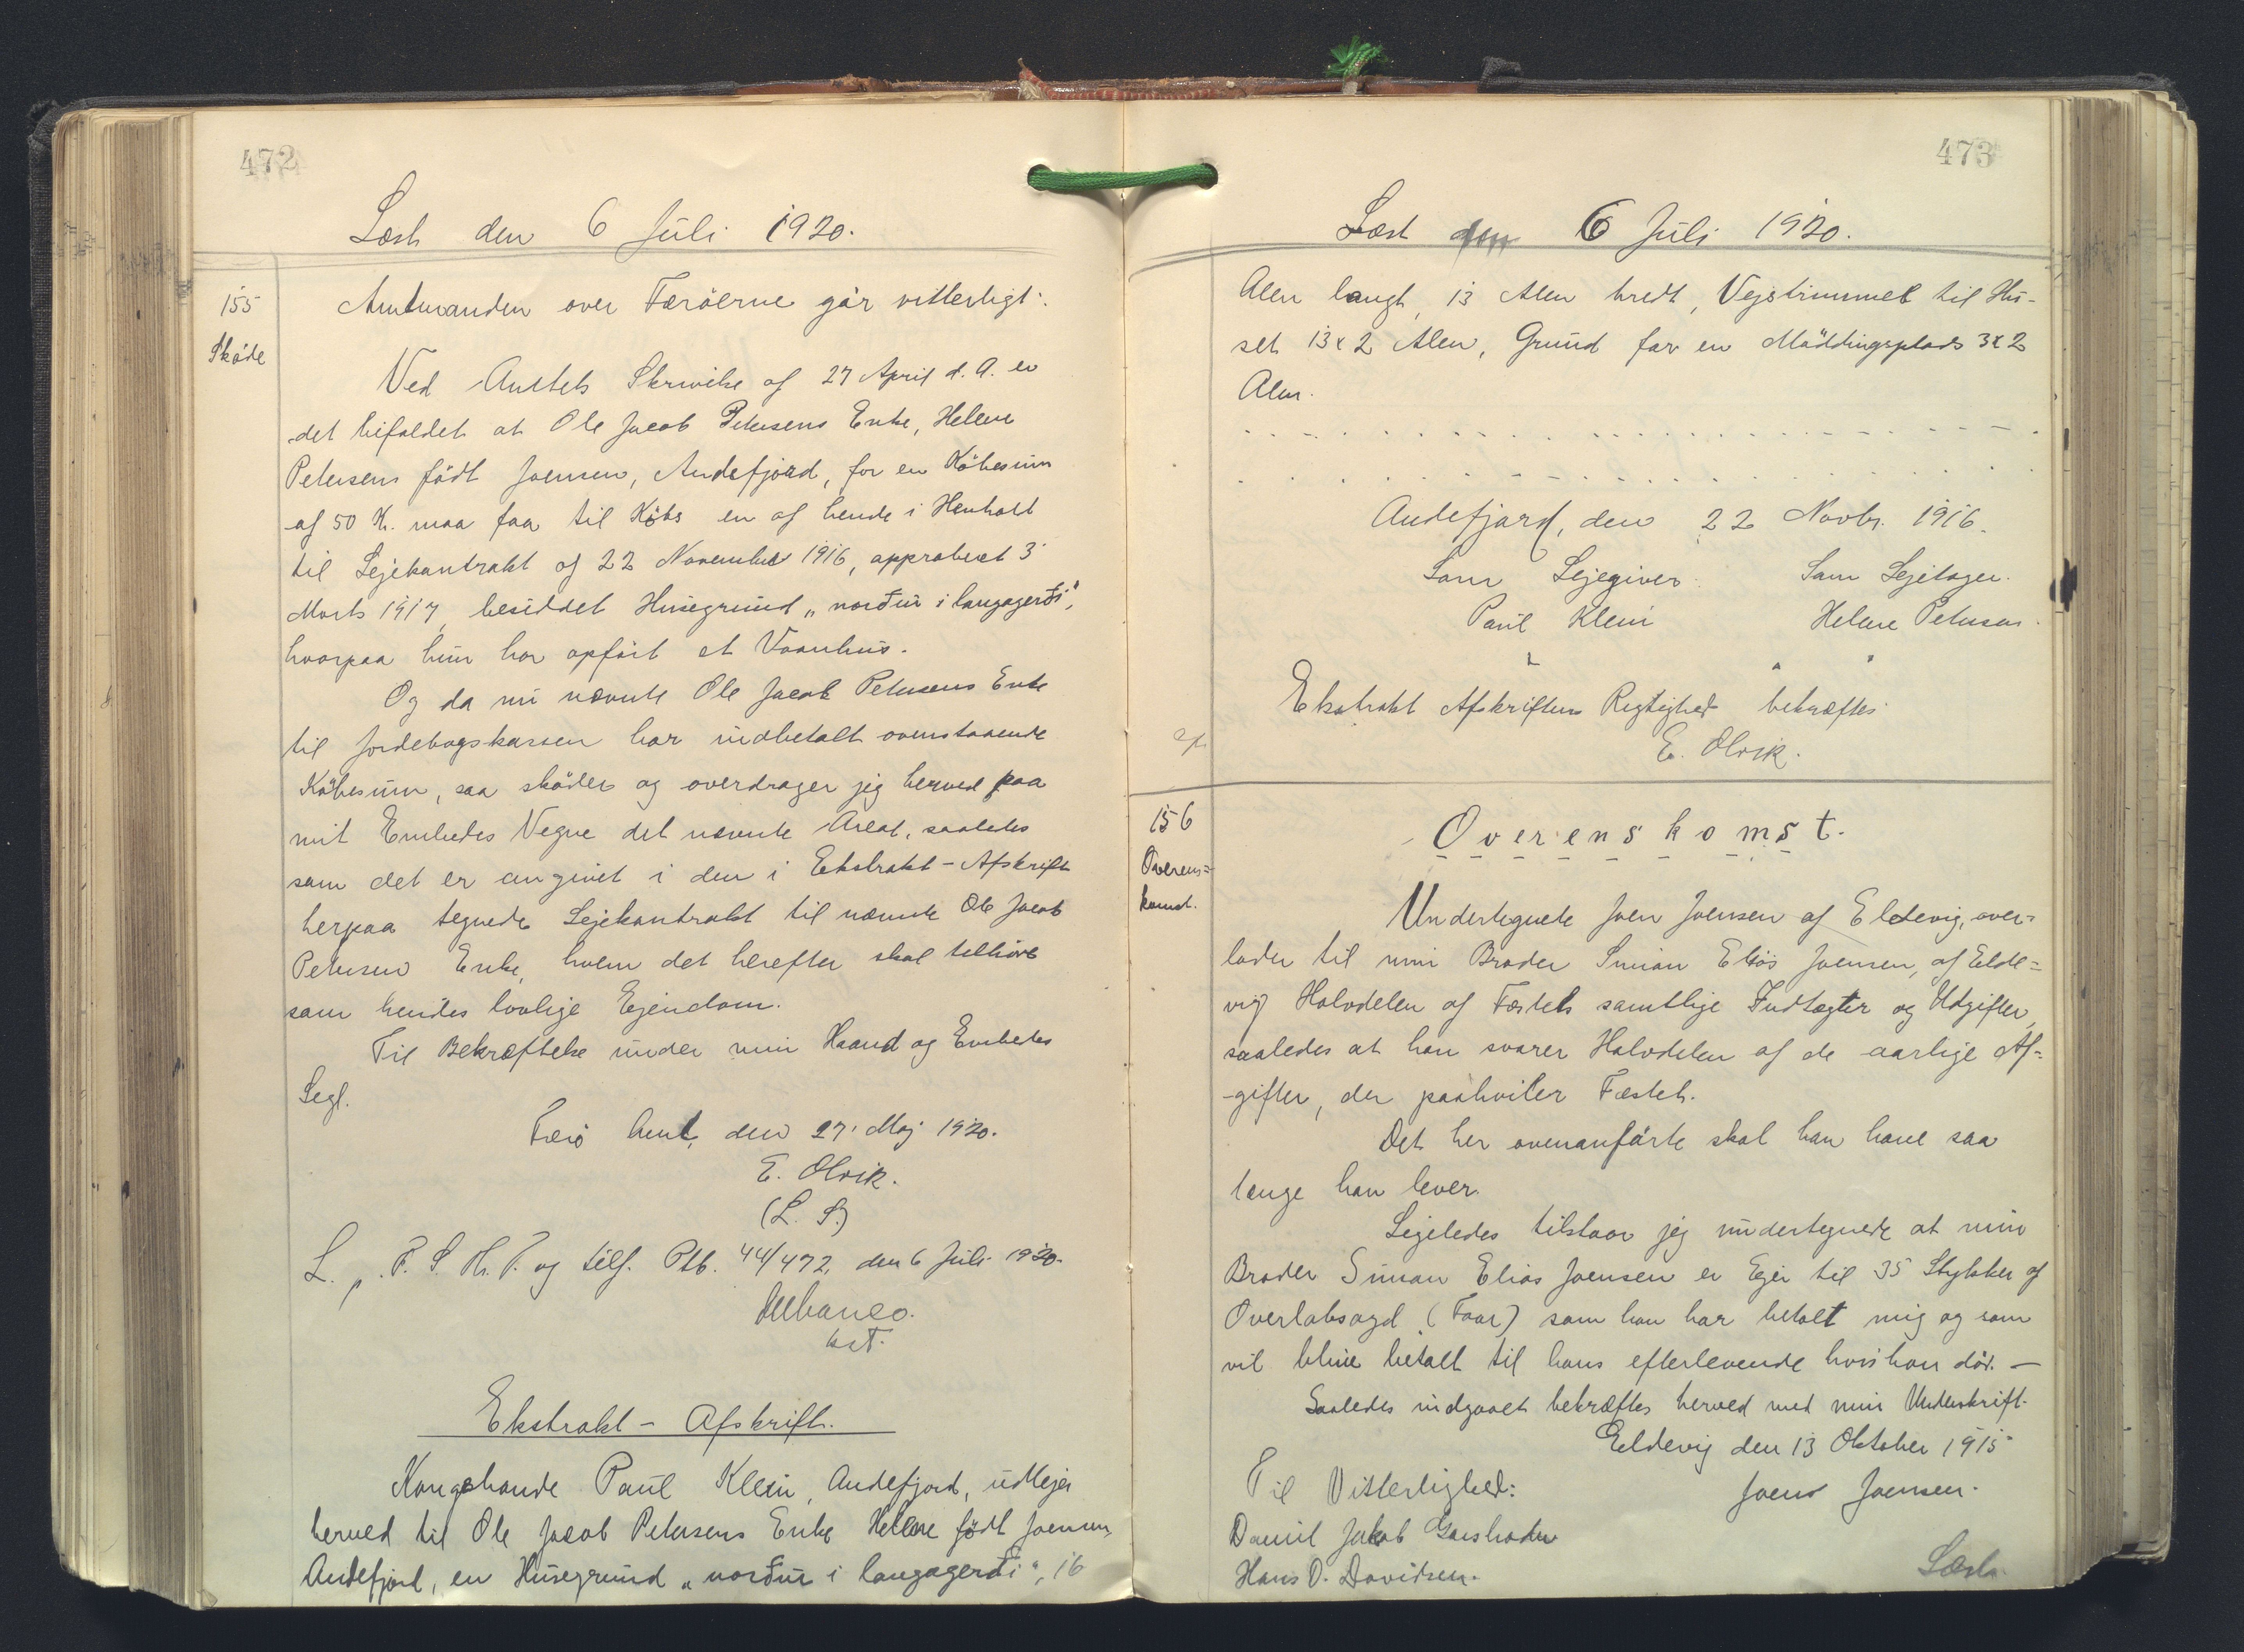 472
Læst den 6 Juli 1920.
155
Skøde
Amtmanden over Færöerne gör vitterligt:
Ved Amtets Skrivelse af 27 April d. A. er
det bifaldet at Ole Jacob Petersens Enke, Helene
Petersens födt Joensen, Andefjord, for en Köbesum
af 50 Kr. maa faa til Köbs en af hende i Henhold
til Lejekontrakt af 22 November 1916, approberet 3
Marts 1917, besiddet Husegrund „norður i langagerði",
hvorpaa hun har opfört et Vaanhus.
Og da nu nævnte Ole Jacob Petersens Enke
til Jordebogskassen har indbetalt ovenstaaende
Köbesum, saa sköder og overdrager jeg herved paa
mit Embedes Vegne det nævnte Areal, saaledes
som det er angivet i den i Ekstrakt-Afskrift
herpaa tegnede Lejekontrakt til nævnte Ole Jacob
Petersens Enke, hvem det herefter skal tilhöre
som hendes lovlige Ejendom.
Til Bekræftelse under min Haand og Embedes
Segl.
Færö Amt, den 27' Maj 1920.
E. Olrik.
(L. S.)
L. p. F. S. H. T. og tilf. Ptb. 44/472, den 6 Juli 1920.
kst.
Ekstrakt-Afskrift.
Kongsbonde Paul Klein, Andefjord, udlejer
herved til Ole Jacob Petersens Enke Helene födt Joensen,
Andefjord, en Husegrund „norður i langagerði", 16
473
Læst den 6 Juli 1920.
Alen langt, 13 Alen bredt, Vejstrimmel til Hu-
set 13x2 Alen, Grund for en Möddingsplads 3x2
Alen.
Andefjord, den 22 Novbr. 1916.
Som Lejegiver: Som Lejetager.
Paul Klein Helene Petersen.
Ekstrakt Afskriftens Rigtighed bekræftes
E. Olrik.
156
Overens=
komst.
Overenskomst.
Undertegnede Joen Joensen af Eldevig, over-
lader til min Broder Simon Elias Joensen, af Elde=
vig Halvdelen af Fæstets samtlige Indtægter og Udgifter,
saaledes at han svarer Halvdelen af de aarlige Af=
-gifter, der paahviler Fæstet.
Det her ovenanförte skal han have saa
længe han lever.
Ligeledes tilstaar jeg undertegnede at min
Broder Simon Elias Joensen er Ejer til 35 Stykker af
Overlabsogd (Faar) som han har betalt mig og som
vil blive betalt til hans efterlevende hvis han dör. —
Saaledes indgaaet bekræftes herved med min Underskrift.
Eeldevig den 13 Oktober 1915
Til Vitterlighed: Joens Joensen.
Daniel Jakob
Hans D. Davidsen.
Læst